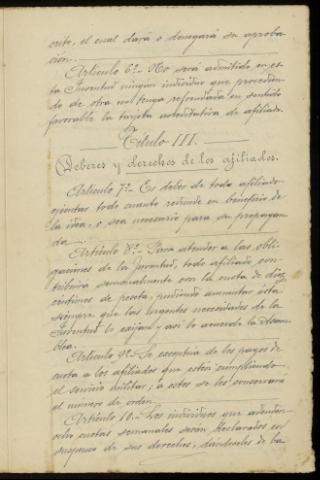 crito, el cual dará o denegará su aproba-
ción.
Artículo 6º. No será admitido en es-
ta Juventud ningún individuo que procedien-
do de otra no tenga refrendada en sentido
favorable la tarjeta acreditativa de afiliado.
Título III.
Deberes y derechos de los afiliados.
Artículo 7º. Es deber de todo afiliado
ejecutar todo cuanto redunde en beneficio de
la idea, o sea necesario para su propagan-
da.
Artículo 8º. Para atender a las obli-
gaciones de la Juventud, todo afiliado con-
tribuirá semanalmente con la cuota de diez
céntimos de peseta, pudiendo aumentar ésta
siempre que las urgentes necesidades de la
Juventud lo exijan y así lo acuerde la Asam-
blea.
Artículo 9º. Se exceptúa de los pagos de
cuota a los afiliados que estén cumpliendo
el servicio militar; a estos se les conservará
el número de orden.
Artículo 10. Los individuos que adeuden
ocho cuotas semanales serán declarados en
suspenso de sus derechos, dándoseles de ba-